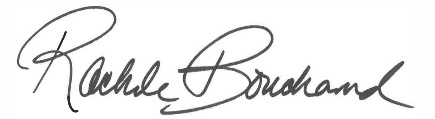 Rachele Bouchand